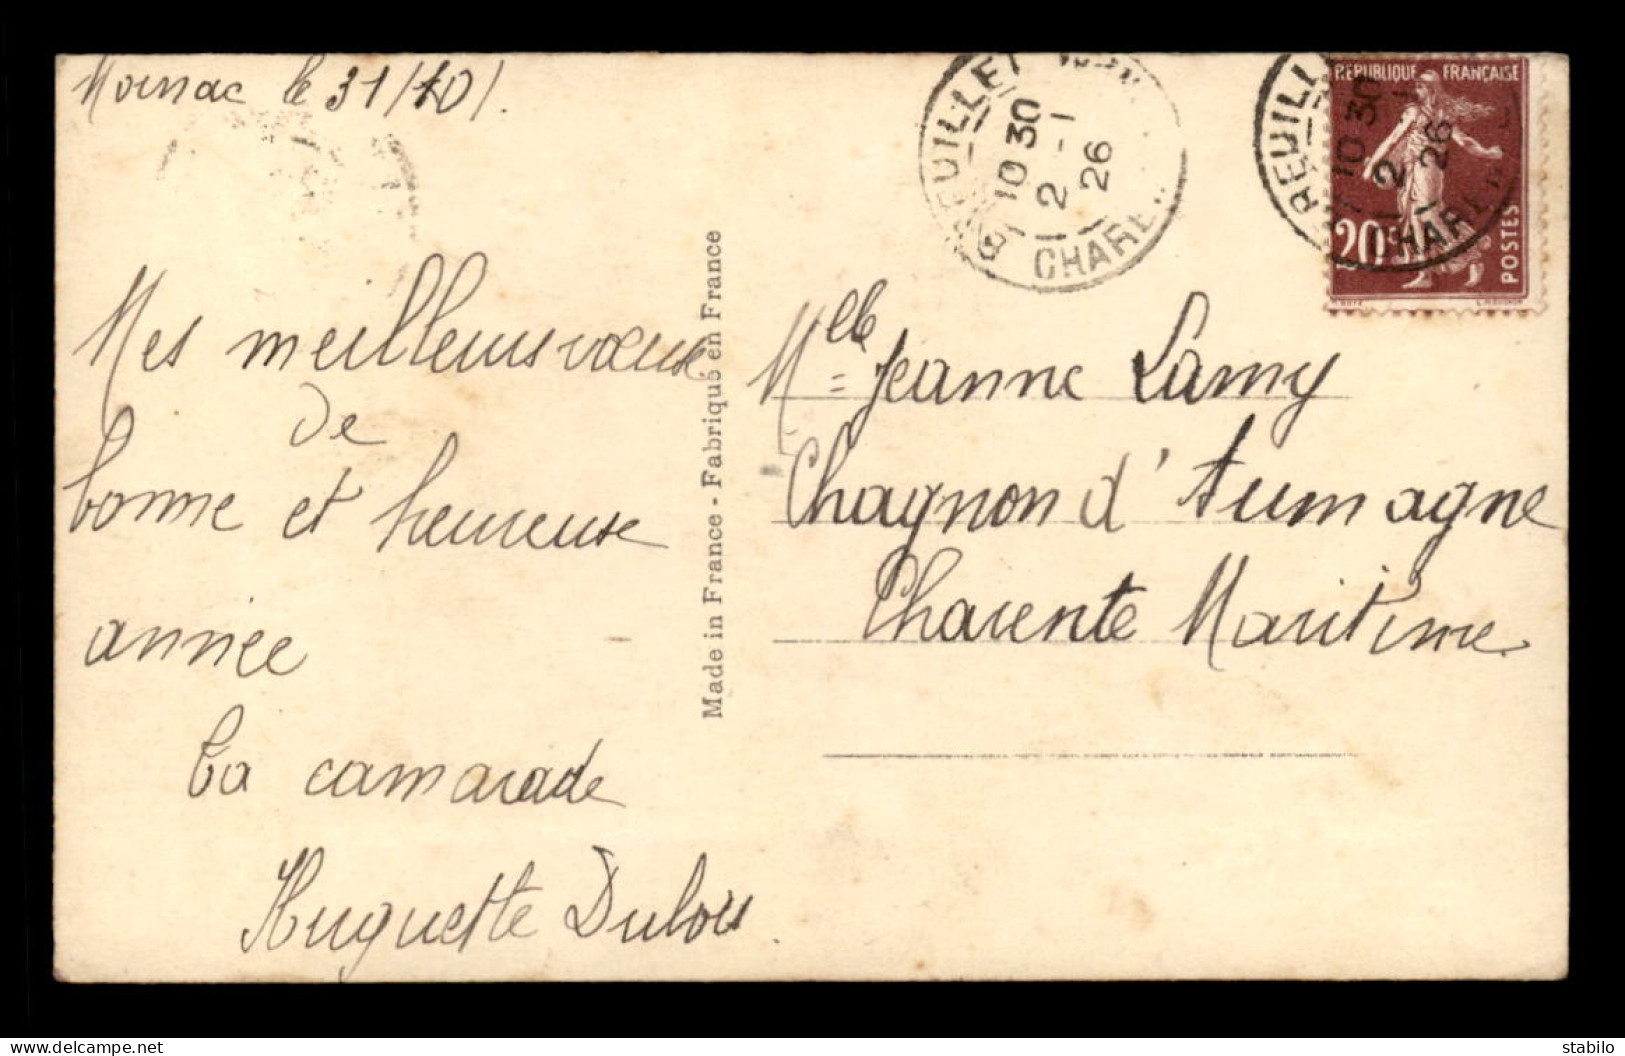 le 31/10/.
Mes meilleurs vœux
de
bonne et heureuse
année
Ta camarade
Huguette Dubois
Made in France - Fabriqué en France
10 30
2 - 1
26
CHARE
REUILL
10 30
2 - 1
26
CHARE
REPUBLIQUE FRANÇAISE
20c
POSTES
Mlle Jeanne Lamy
Chagnon d'Aumagne
Charente Maritime
delcampe.net
stabilo